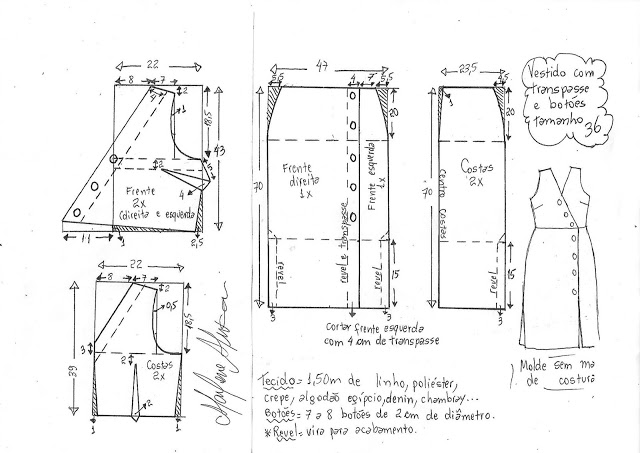 22
8
7
2
4
1
18,5
43
7
2
3
4
Frente
2x
(direita e esquerda)
11
1
2,5
22
8
7
2
0,5
18,5
39
3
2
Costas
2x
2
1
1
Marlene Mukai
47
5,5
4
7
5,5
20
70
Frente
direita
1x
revel e transpasse
Frente esquerda
1x
revel
revel
15
3
3
cortar frente esquerda
com 4 cm de transpasse
23,5
4,5
1
20
70
Costas
2x
centro costas
revel
15
3
Vestido com
transpasse
e botões
tamanho 36
Molde sem ma
de costura
Tecido= 1,50m de linho, poliéster,
crepe, algodão egípcio, denin, chambray...
Botões= 7 a 8 botões de 2 cm de diâmetro.
*Revel= vira para acabamento.